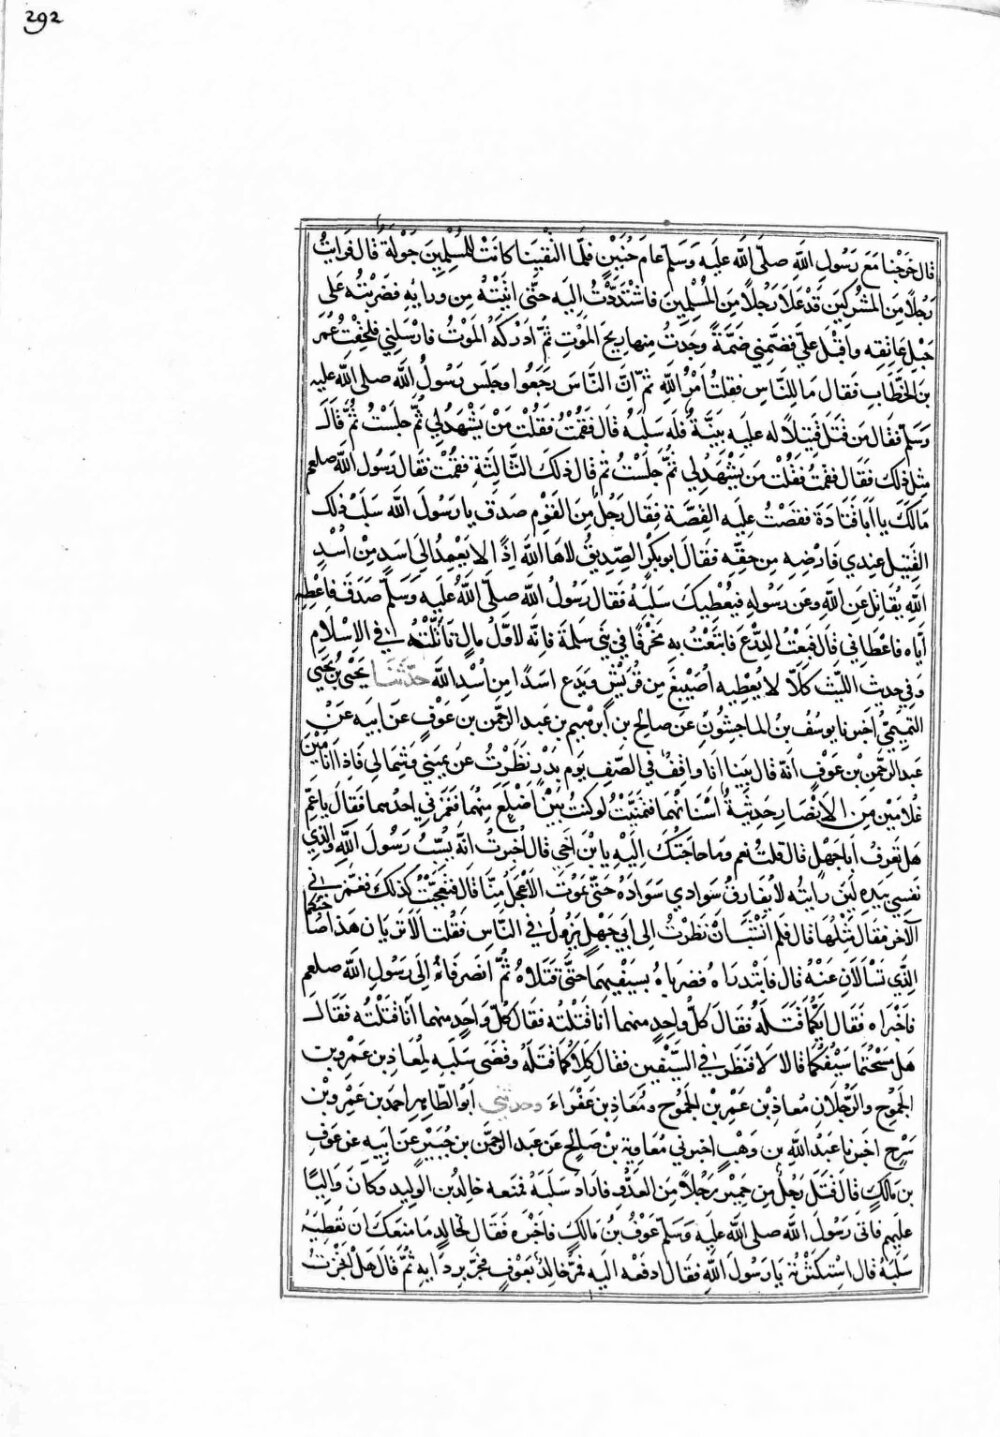 292
قال خرجنا مع رسول الله صلى الله عليه وسلم عام حنين فلما التقينا كانت للمسلمين جولة قال فرايت
رجلا من المشركين قد علا رجلا من المسلمين فاشتددت اليه حتى اتيته من ورايه فضربته على
حبل عاتقه واقبل علي فضمني ضمة وجدت منها ريح الموت ثم ادركه الموت فارسلني فلحقت عمر
بن الخطاب فقال ما للناس فقلت امر الله ثم ان الناس رجعوا وجلس رسول الله صلى الله عليه
وسلم فقال من قتل قتيلا له عليه بينة فله سلبه قال فقمت فقلت من يشهد لي ثم جلست ثم قال
مثل ذلك فقال فقمت فقلت من يشهد لي ثم جلست ثم قال ذلك الثالثة فقمت فقال رسول الله صلعم
مالك يا ابا قتادة فقصصت عليه القصة فقال رجل من القوم صدق يا رسول الله سلب ذلك
القتيل عندي فارضه من حقه فقال ابو بكر الصديق لاها الله اذا لا يعمد الى اسد من اسد
الله يقاتل عن الله وعن رسوله فيعطيك سلبه فقال رسول الله صلى الله عليه وسلم صدق فاعطه
اياه فاعطاني قال فبعت الدرع فابتعت به مخرفا في بني سلمة فانه لاول مال تاثلته في الاسلام
وفي حديث الليث كلا لا يعطيه اضيبع من قريش ويدع اسدا من اسد الله حدثنا يحيى بن يحيى
التميمي اخبرنا يوسف بن الماجشون عن صالح بن ابرهيم بن عبد الرحمن بن عوف عن ابيه عن
عبد الرحمن بن عوف انه قال بينا انا واقف في الصف يوم بدر نظرت عن يميني وشمالي فاذا انا بين
غلامين من الانصار حديثة اسنانهما فتمنيت لو كنت بين اضلع منهما فغمزني احدهما فقال يا عم
هل تعرف ابا جهل قال قلت نعم وما حاجتك اليه يا بن اخي قال اخبرت انه يسب رسول الله والذي
نفسي بيده لئن رايته لا يفارق سوادي سواده حتى يموت الاعجل منا قال فتعجبت كذلك فغمزني
الآخر فقال مثلها قال فلم انشب ان نظرت الى ابي جهل يزول في الناس فقلت الا تريان هذا صاحبكما
الذي تسالان عنه قال فابتدراه فضرباه بسيفيهما حتى قتلاه ثم انصرفا الى رسول الله صلعم
فاخبراه فقال ايكما قتله فقال كل واحد منهما انا قتلته فقال كل واحد منهما انا قتلته فقال
هل مسحتما سيفكما قالا لا فنظر في السيفين فقال كلاكما قتله وقضى سلبه لمعاذ بن عمرو بن
الجموح والرجلان معاذ بن عمرو بن الجموح ومعاذ بن عفراء وحدثني ابو الطاهر احمد بن عمرو بن
سرح اخبرنا عبد الله بن وهب اخبرني معاوية بن صالح عن عبد الرحمن بن جبير عن ابيه عن عوف
بن مالك قال قتل رجل من حمير رجلا من العدو فاراد سلبه فمنعه خالد بن الوليد وكان واليا
عليهم فاتى رسول الله صلى الله عليه وسلم عوف بن مالك فاخبره فقال لخالد ما منعك ان تعطيه
سلبه قال استكثرته يا رسول الله فقال ادفعه اليه فمر خالد بعوف فجر بردايه ثم قال هل انجزت